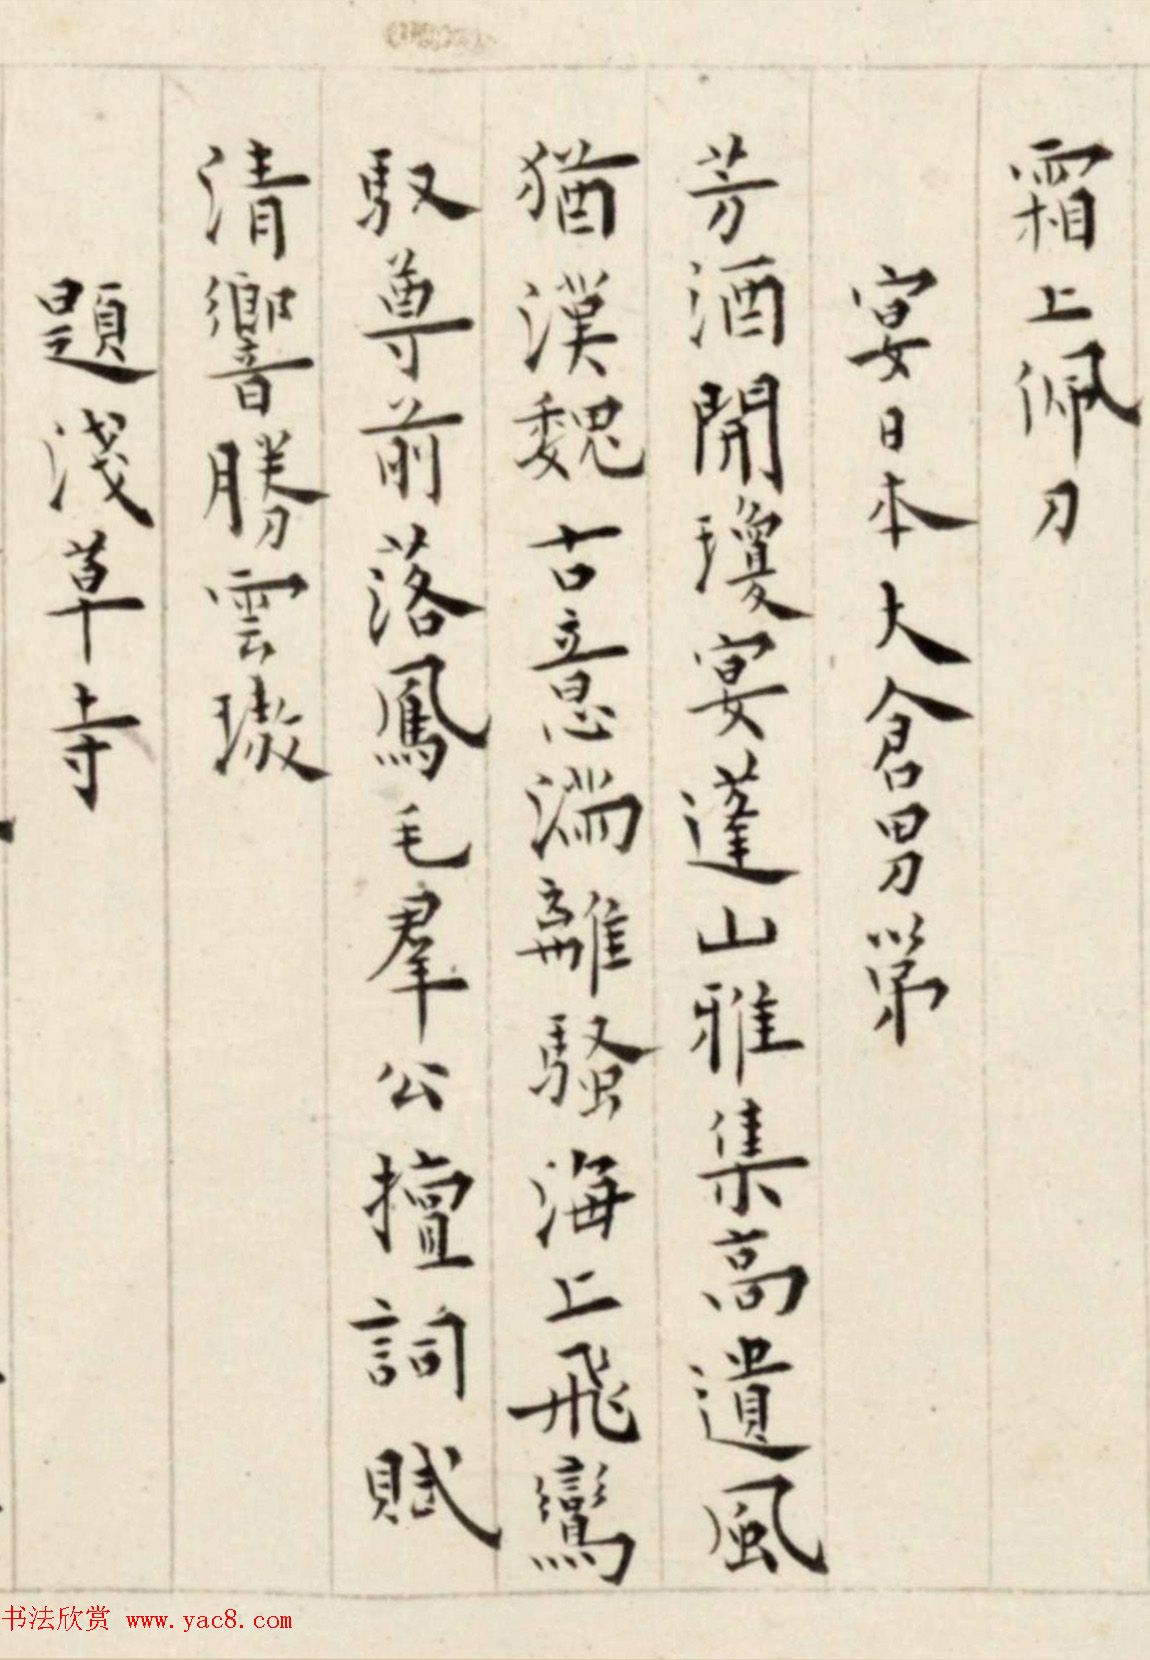 霜上佩刀
宴日本大倉男第
芳酒開瓊宴蓬山雅集高遺風
猶漢魏古意湍離騷海上飛鸞
馭尊前落鳳毛羣公擅詞賦
清響勝雲璈
題淺草寺
书法欣赏 www.yac8.com